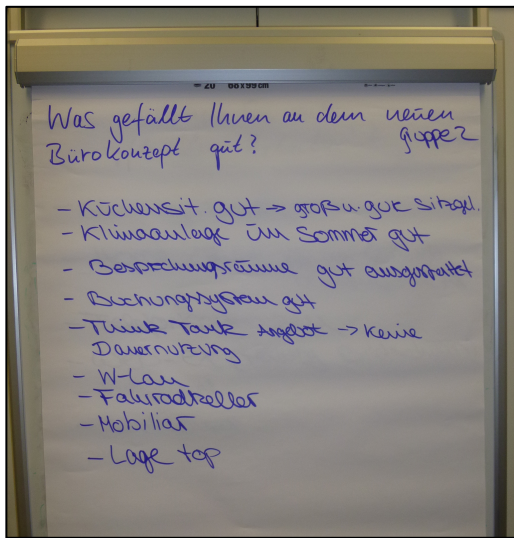 20 68x99cm
Was gefällt Ihnen an dem neuen
Gruppe 2
Bürokonzept gut?
- Küchensit. gut → groß u. gute Sitzgel.
- Klimaanlage im Sommer gut
- Besprechungsräume gut ausgestattet
- Buchungssystem gut
- Think Tank Angebot → keine
Dauernutzung
- W-Lan
- Fahrradkeller
- Mobiliar
- Lage top